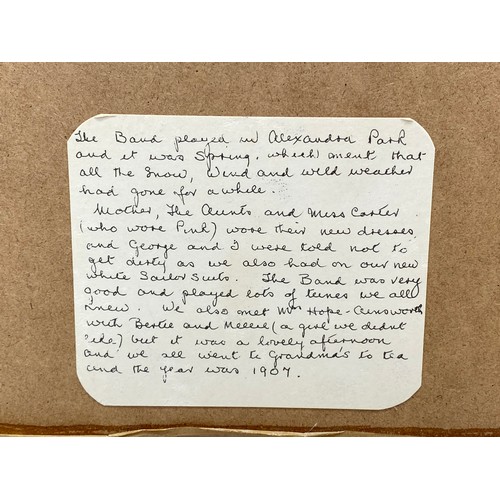 The Band played in Alexandra Park
and it was Spring, which ment that
all the Snow, Wind and wild weather
had gone for a while.
Mother, The Aunts and Miss Carter
(who wore Pink) wore their new dresses
and George and I were told not to
get dirty as we also had on our new
white Sailor Suits. The Band was very
good and played lots of tunes we all
knew. We also met Mrs Hope-Ainsworth
with Bertie and Mellie (a girl we didnt
like) but it was a lovely afternoon
and we all went to Grandma's to tea
and the year was 1907.